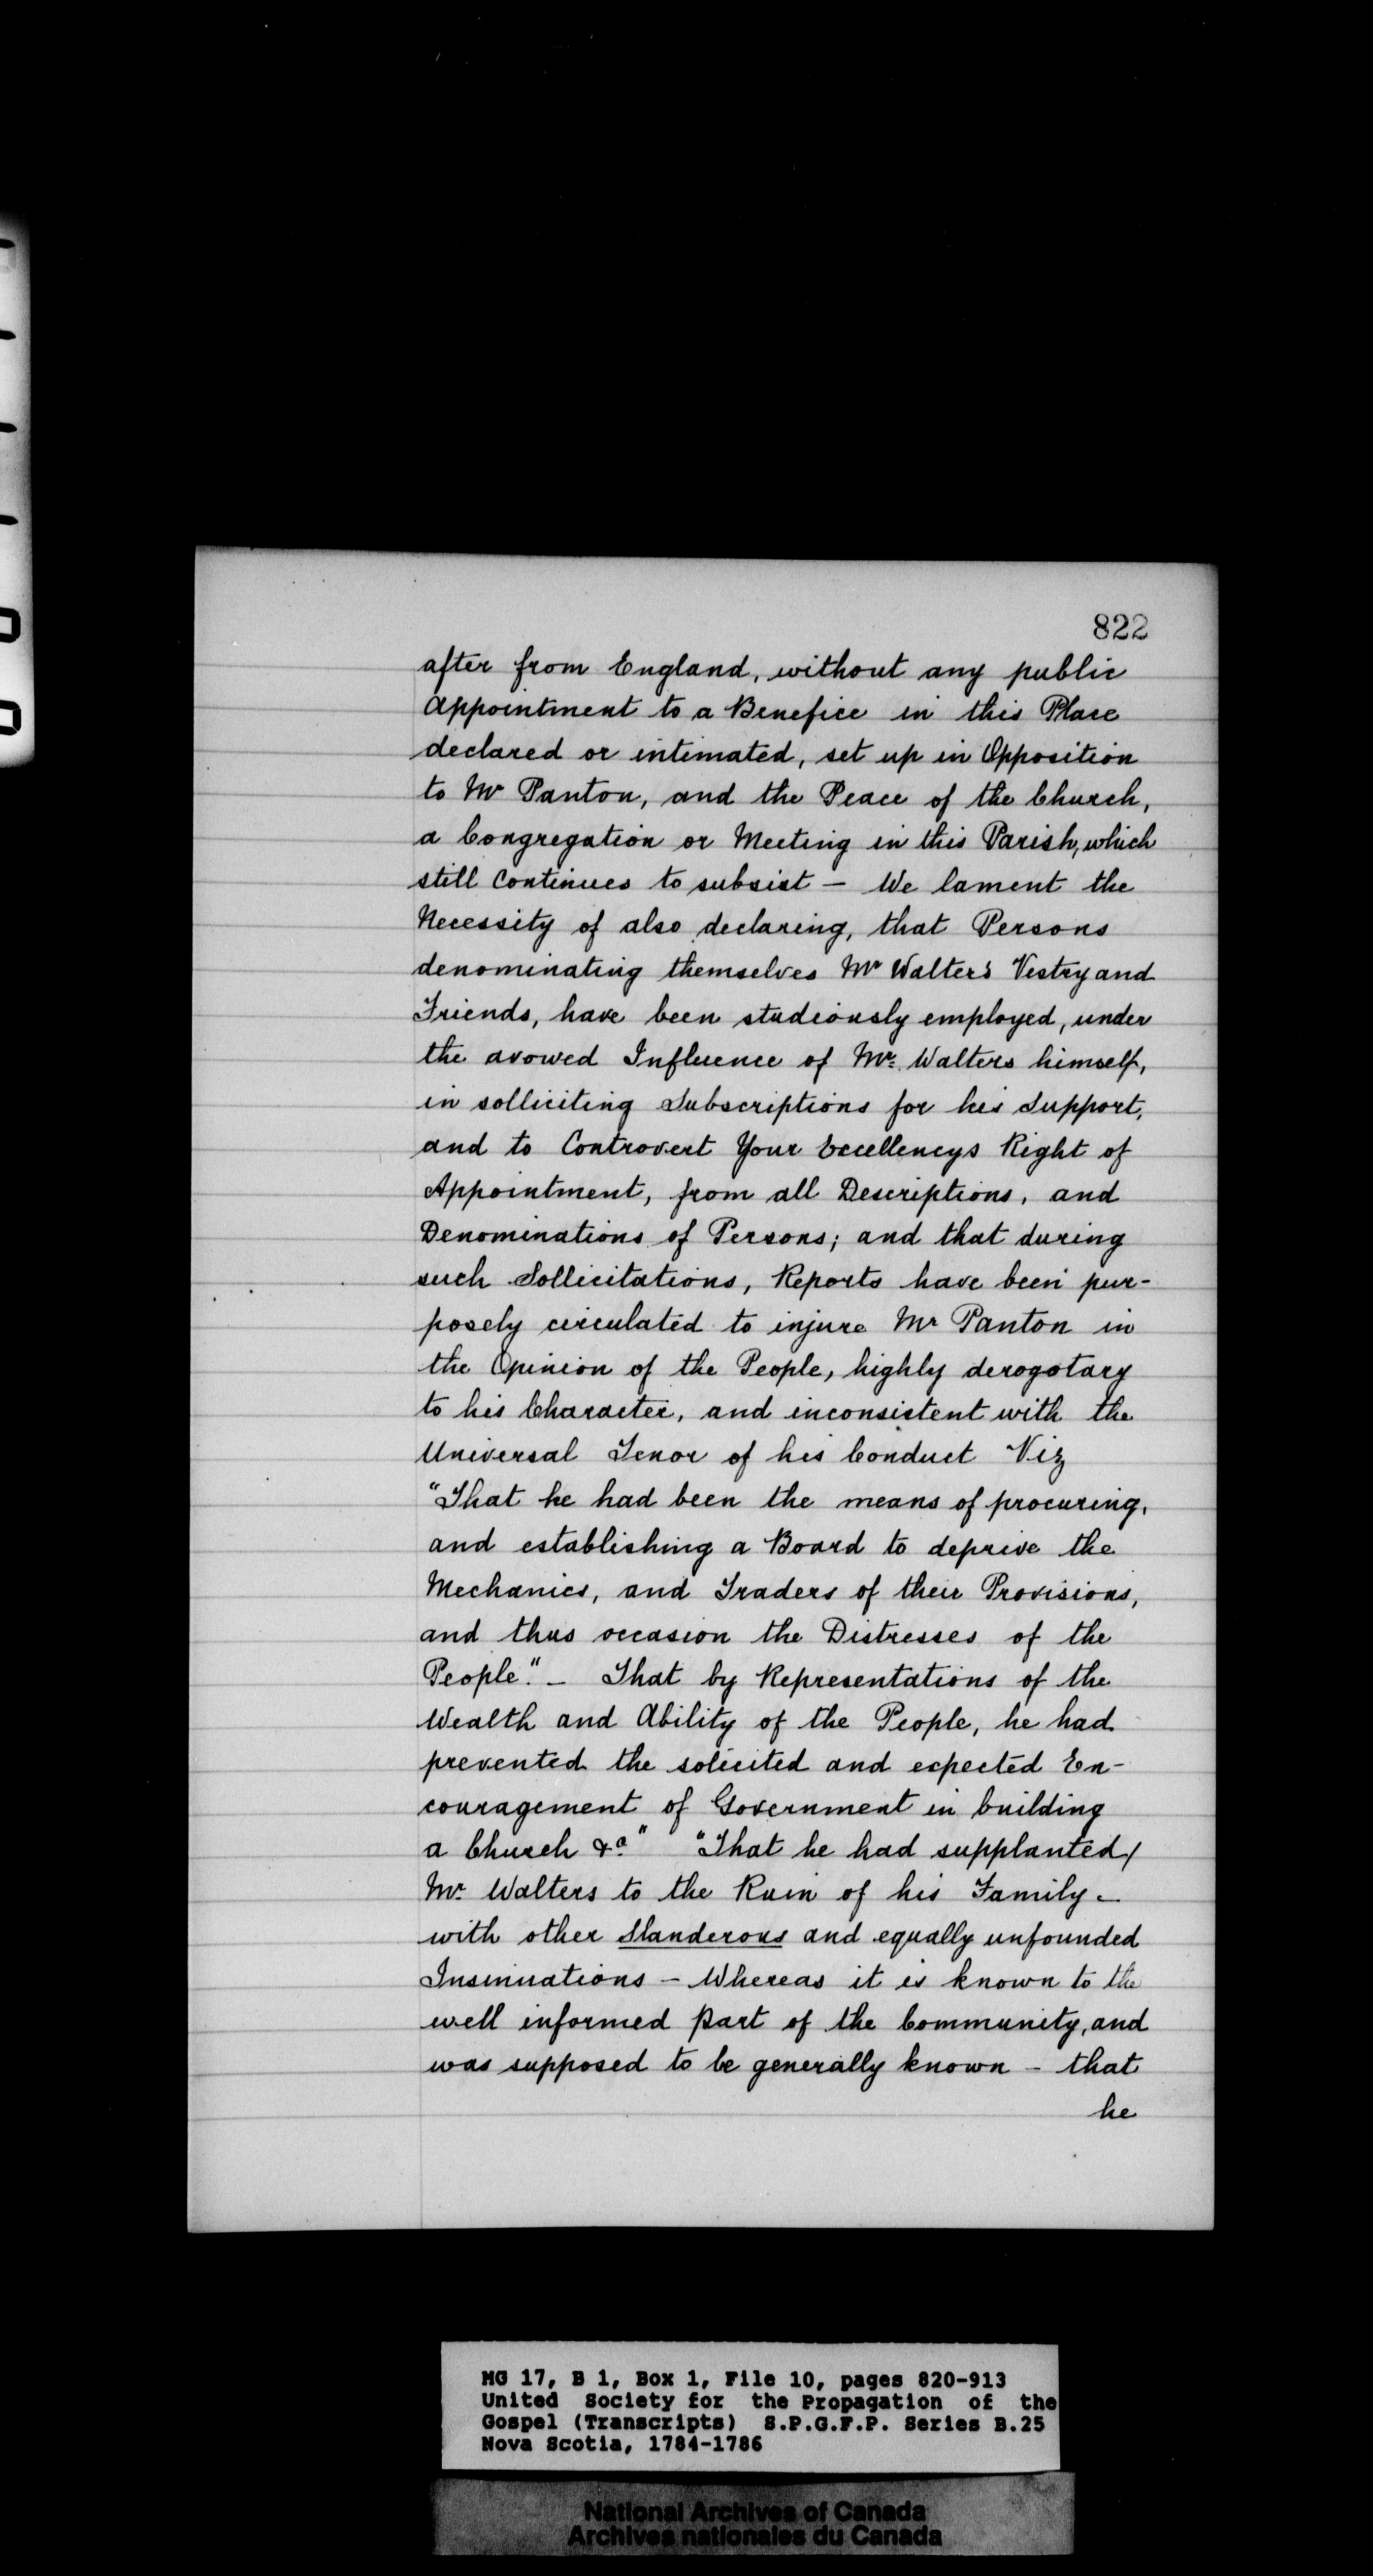 822
after from England, without any public
Appointment to a Benefice in this Place
declared or intimated, set up in Opposition
to Mr Panton, and the Peace of the Church,
a Congregation or Meeting in this Parish, which
still Continues to subsist – We lament the
Necessity of also declaring, that Persons
denominating themselves Mr Walter's Vestry and
Friends, have been studiously employed, under
the avowed Influence of Mr. Walters himself,
in solliciting Subscriptions for his Support,
and to Controvert Your Excellencys Right of
Appointment, from all Descriptions, and
Denominations of Persons; and that during
such Sollicitations, Reports have been pur-
posely circulated to injure Mr Panton in
the Opinion of the People, highly derogotary
to his Character, and inconsistent with the
Universal Tenor of his Conduct Viz
"That he had been the means of procuring,
and establishing a Board to deprive the
Mechanics, and Traders of their Provisions,
and thus occasion the Distresses of the
People." – That by Representations of the
Wealth and Ability of the People, he had
prevented the solicited and expected En-
couragement of Government in building
a Church &a" "That he had supplanted/
Mr. Walters to the Ruin of his Family –
with other Slanderous and equally unfounded
Insinuations – Whereas it is known to the
well informed part of the Community, and
was supposed to be generally known – that
he
MG 17, B 1, Box 1, File 10, pages 820-913
United Society for the Propagation of the
Gospel (Transcripts) S.P.G.F.P. Series B.25
Nova Scotia, 1784-1786
National Archives of Canada
Archives nationales du Canada